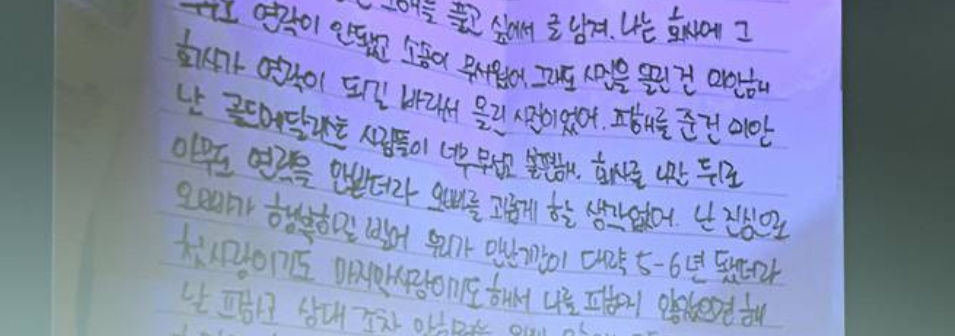 오해를 풀고 싶어서 글 남겨. 나는 회사에 그
연락이 안됐고 소송이 무서웠어. 그래도 사진을 올린 건 미안해
회사가 연락이 되길 바라서 올린 사진이었어. 피해를 준건 미안
난 골드메달리스트 사람들이 너무 무섭고 불편해. 회사를 나간 뒤로
아무도 연락을 안받더라 오빠를 괴롭게 할 생각없어. 난 진심으로
오빠가 행복하길 빌어 우리가 만난기간이 대략 5-6년 됐더라
첫사랑이기도 마지막사랑이기도 해서 나를 피하지 않았으면 해
난 상대 조차